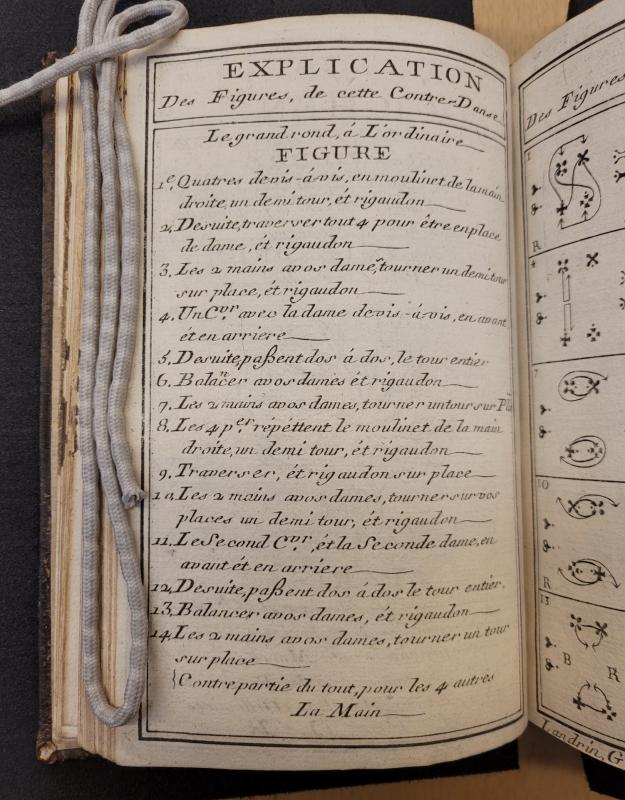 EXPLICATION
Des Figures, de cette Contre-Danse
Le grand rond, á L'ordinaire
FIGURE
1e. Quatres devis-á-vis, en moulinet de la main
droite, un demi tour, ét rigaudon
2. Desuite, traverser tout 4 pour être en place
de dame, ét rigaudon
3. Les 2 mains avos dames, tourner un demi tour
sur place, ét rigaudon
4. Un Cvr. avec la dame devis-á-vis, en avant
ét en arriere
5. Desuite, paßent dos á dos, le tour entier
6. Balancer avos dames ét rigaudon
7. Les 2 mains avos dames, tourner un tour sur Pla
8. Les 4 pers répéttent le moulinet de la main
droite, un demi tour, ét rigaudon
9. Traverser, ét rigaudon sur place
10. Les 2 mains avos dames, tourner sur vos
places un demi tour, ét rigaudon
11. Le Second Cvr. ét la Seconde dame, en
avant ét en arriere
12. Desuite, paßent dos á dos le tour entier.
13. Balancer avos dames, ét rigaudon
14. Les 2 mains avos dames, tourner un tour
sur place
Contre partie du tout, pour les 4 autres
La Main
Des Figures
1
R
4
7
10
R
13
B
R
Landrin, G